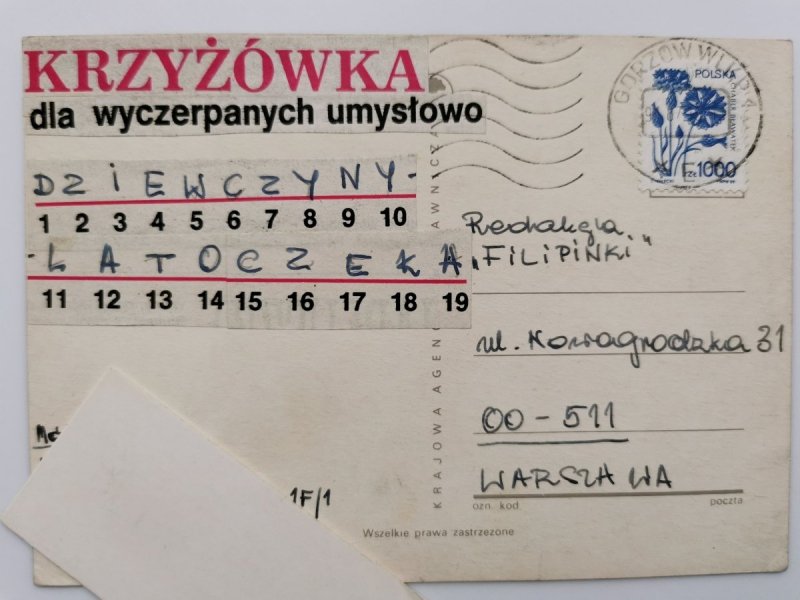 KRZYŻÓWKA
dla wyczerpanych umysłowo
DZIEWCZYNY-
1 2 3 4 5 6 7 8 9 10
-LATOCZEKA
11 12 13 14 15 16 17 18 19
1F/1
KRAJOWA AGEN
AWNICZA
GORZÓW WLKP 4
POLSKA
CHABER BŁAWATEK
ZŁ 1000
Redakcja
„FILIPINKI"
ul. Nowogrodzka 31
00-511
WARSZAWA
ozn. kod
poczta
Wszelkie prawa zastrzeżone